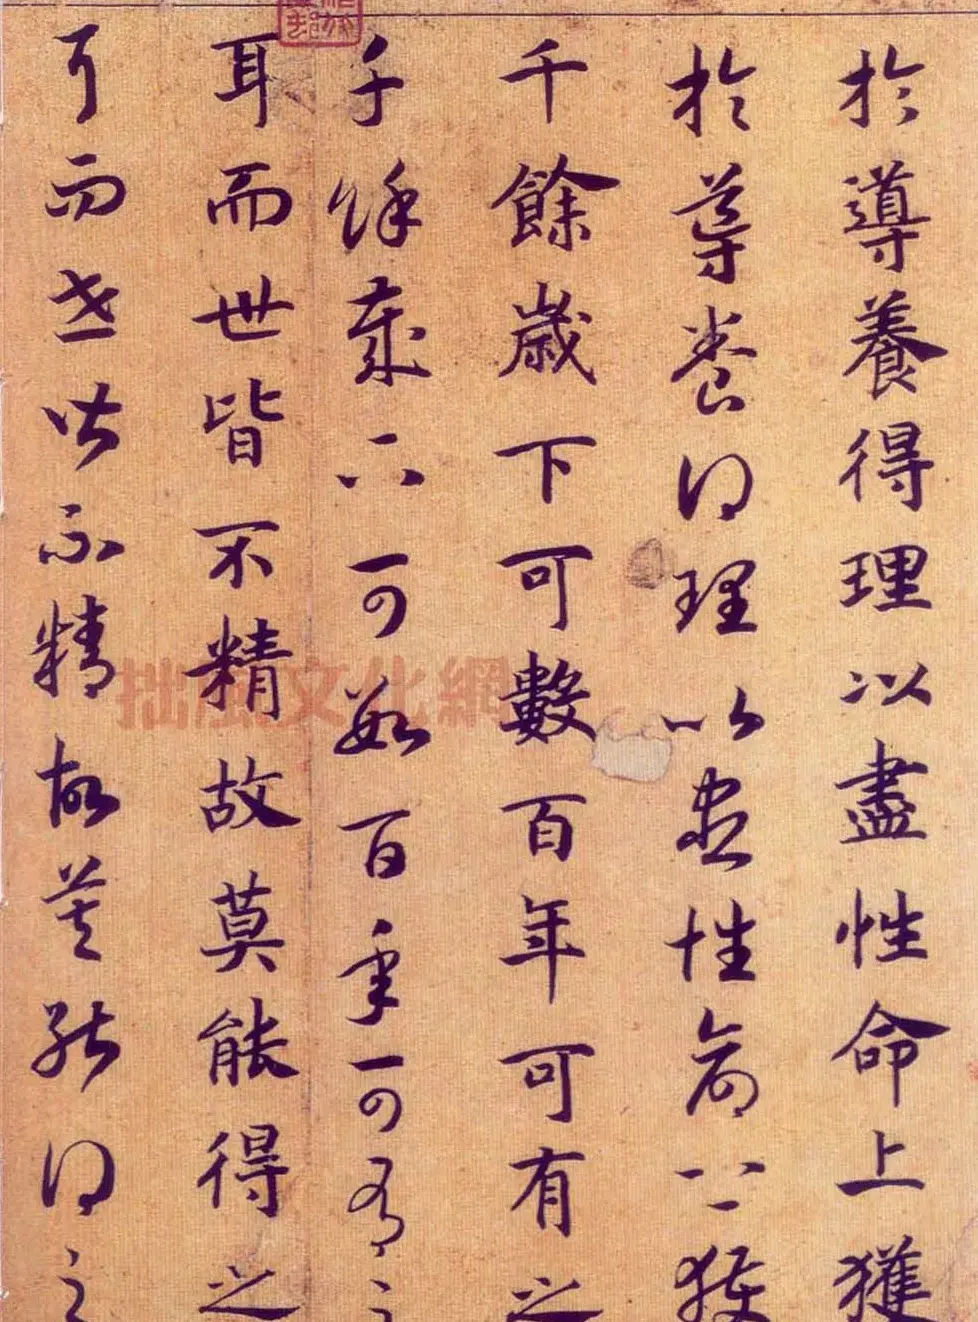 於導養得理以盡性命上獲
於導養得理以盡性命上獲
千餘歲下可數百年可有之
千餘歲下可數百年可有之
耳而世皆不精故莫能得之
耳而世皆不精故莫能得之
拙風文化網